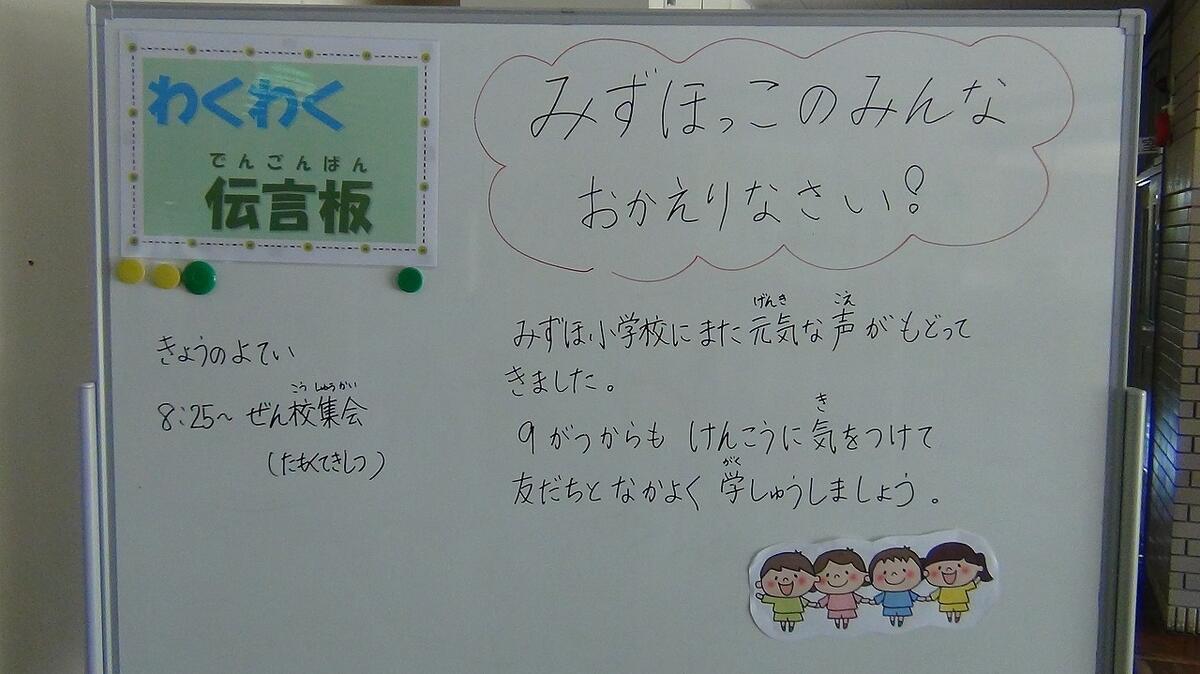 わくわく
でんごんばん
伝言板
みずほっこのみんな
おかえりなさい！
きょうのよてい
こうしゅうかい
8:25～ ぜん校集会
(たもくてきしつ)
げんき こえ
みずほ小学校にまた元気な声がもどって
きました。
き
9がつからも けんこうに気をつけて
がく
友だちとなかよく 学しゅうしましょう。